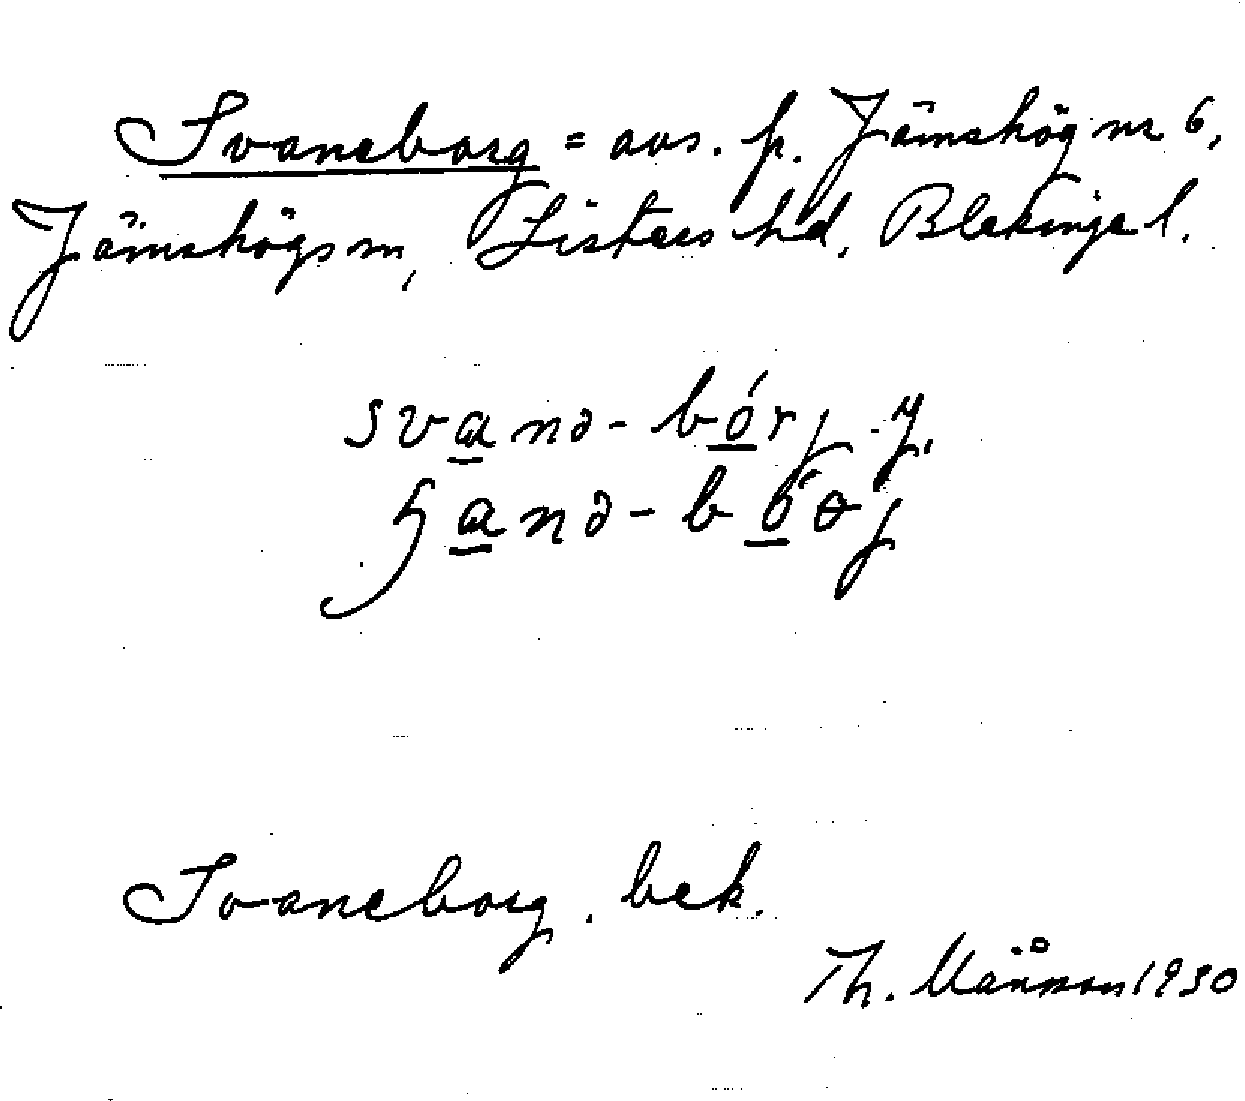 Svaneborg = avs. p. Jämshög nr 6,
Jämshögs sn, Listers hd, Blekinge l.
svanə-bórj y.
Svaneborg. bek.
Th. 1930